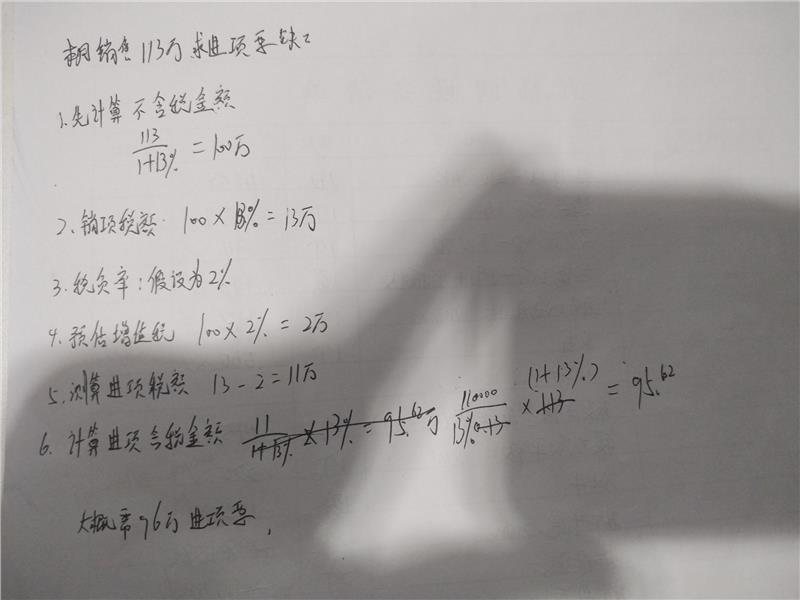 本月销售113万求进项票缺口
1.先计算不含税金额
113/1+13% = 100万
2.销项税额 100×13%=13万
3.税负率:假设为2%
4.预估增值税 100×2%=2万
5.测算进项税额 13-2=11万
6.计算进项含税金额 11/1+13% ×13%=95.62万 110000/13% 0.13 ×1.13 (1+13%) = 95.62
大概需96万进项票,